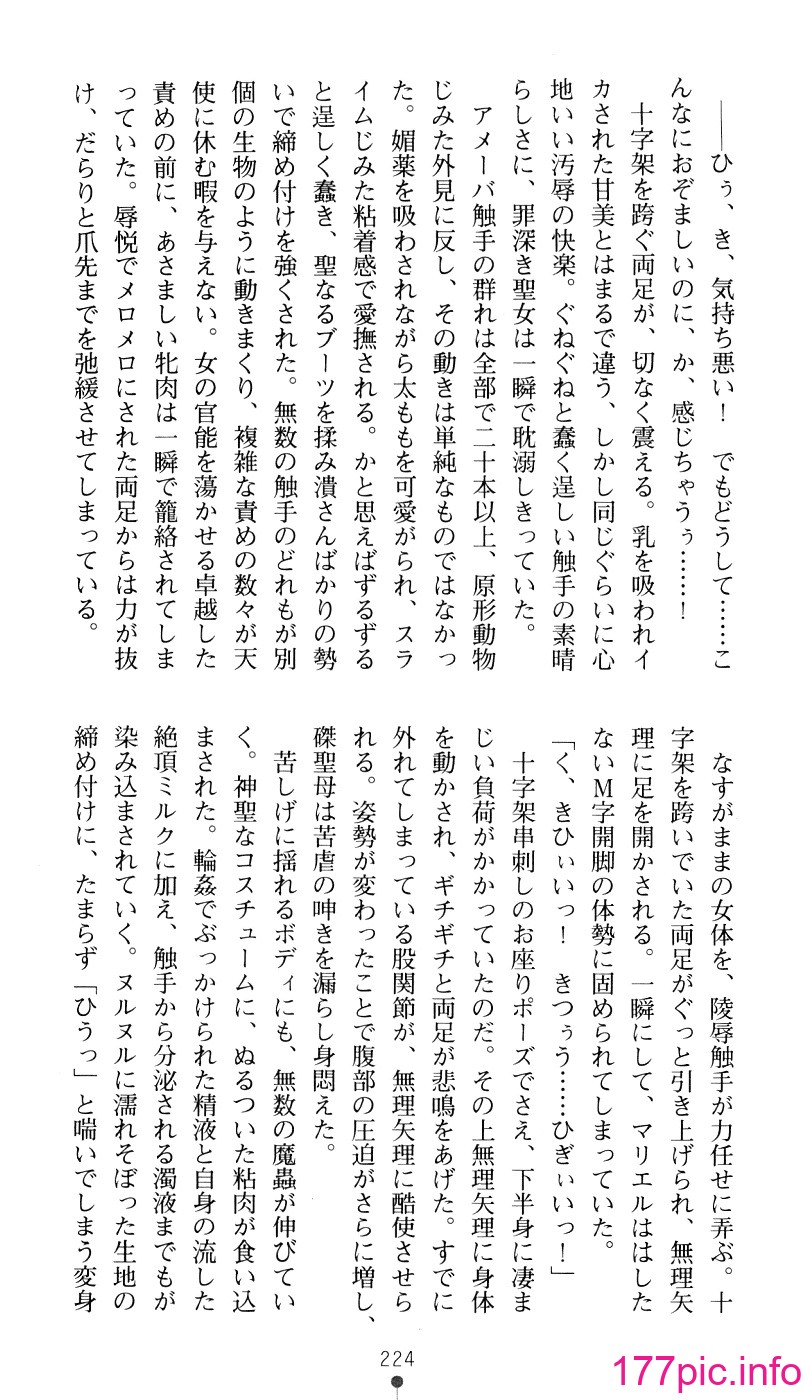 ――ひぅ、き、気持ち悪い！　でもどうして……こ
んなにおぞましいのに、か、感じちゃうぅ……！
　十字架を跨ぐ両足が、切なく震える。乳を吸われイ
カされた甘美とはまるで違う、しかし同じぐらいに心
地いい汚辱の快楽。ぐねぐねと蠢く逞しい触手の素晴
らしさに、罪深き聖女は一瞬で耽溺しきっていた。
　アメーバ触手の群れは全部で二十本以上、原形動物
じみた外見に反し、その動きは単純なものではなかっ
た。媚薬を吸わされながら太ももを可愛がられ、スラ
イムじみた粘着感で愛撫される。かと思えばずるずる
と逞しく蠢き、聖なるブーツを揉み潰さんばかりの勢
いで締め付けを強くされた。無数の触手のどれもが別
個の生物のように動きまくり、複雑な責めの数々が天
使に休む暇を与えない。女の官能を蕩かせる卓越した
責めの前に、あさましい牝肉は一瞬で籠絡されてしま
っていた。辱悦でメロメロにされた両足からは力が抜
け、だらりと爪先までを弛緩させてしまっている。
　なすがままの女体を、陵辱触手が力任せに弄ぶ。十
字架を跨いでいた両足がぐっと引き上げられ、無理矢
理に足を開かされる。一瞬にして、マリエルははした
ないＭ字開脚の体勢に固められてしまっていた。
「く、きひぃいっ！　きつぅう……ひぎぃいっ！」
　十字架串刺しのお座りポーズでさえ、下半身に凄ま
じい負荷がかかっていたのだ。その上無理矢理に身体
を動かされ、ギチギチと両足が悲鳴をあげた。すでに
外れてしまっている股関節が、無理矢理に酷使させら
れる。姿勢が変わったことで腹部の圧迫がさらに増し、
磔聖母は苦虐の呻きを漏らし身悶えた。
　苦しげに揺れるボディにも、無数の魔蟲が伸びてい
く。神聖なコスチュームに、ぬるついた粘肉が食い込
まされた。輪姦でぶっかけられた精液と自身の流した
絶頂ミルクに加え、触手から分泌される濁液までもが
染み込まされていく。ヌルヌルに濡れそぼった生地の
締め付けに、たまらず「ひうっ」と喘いでしまう変身
224
177pic.info